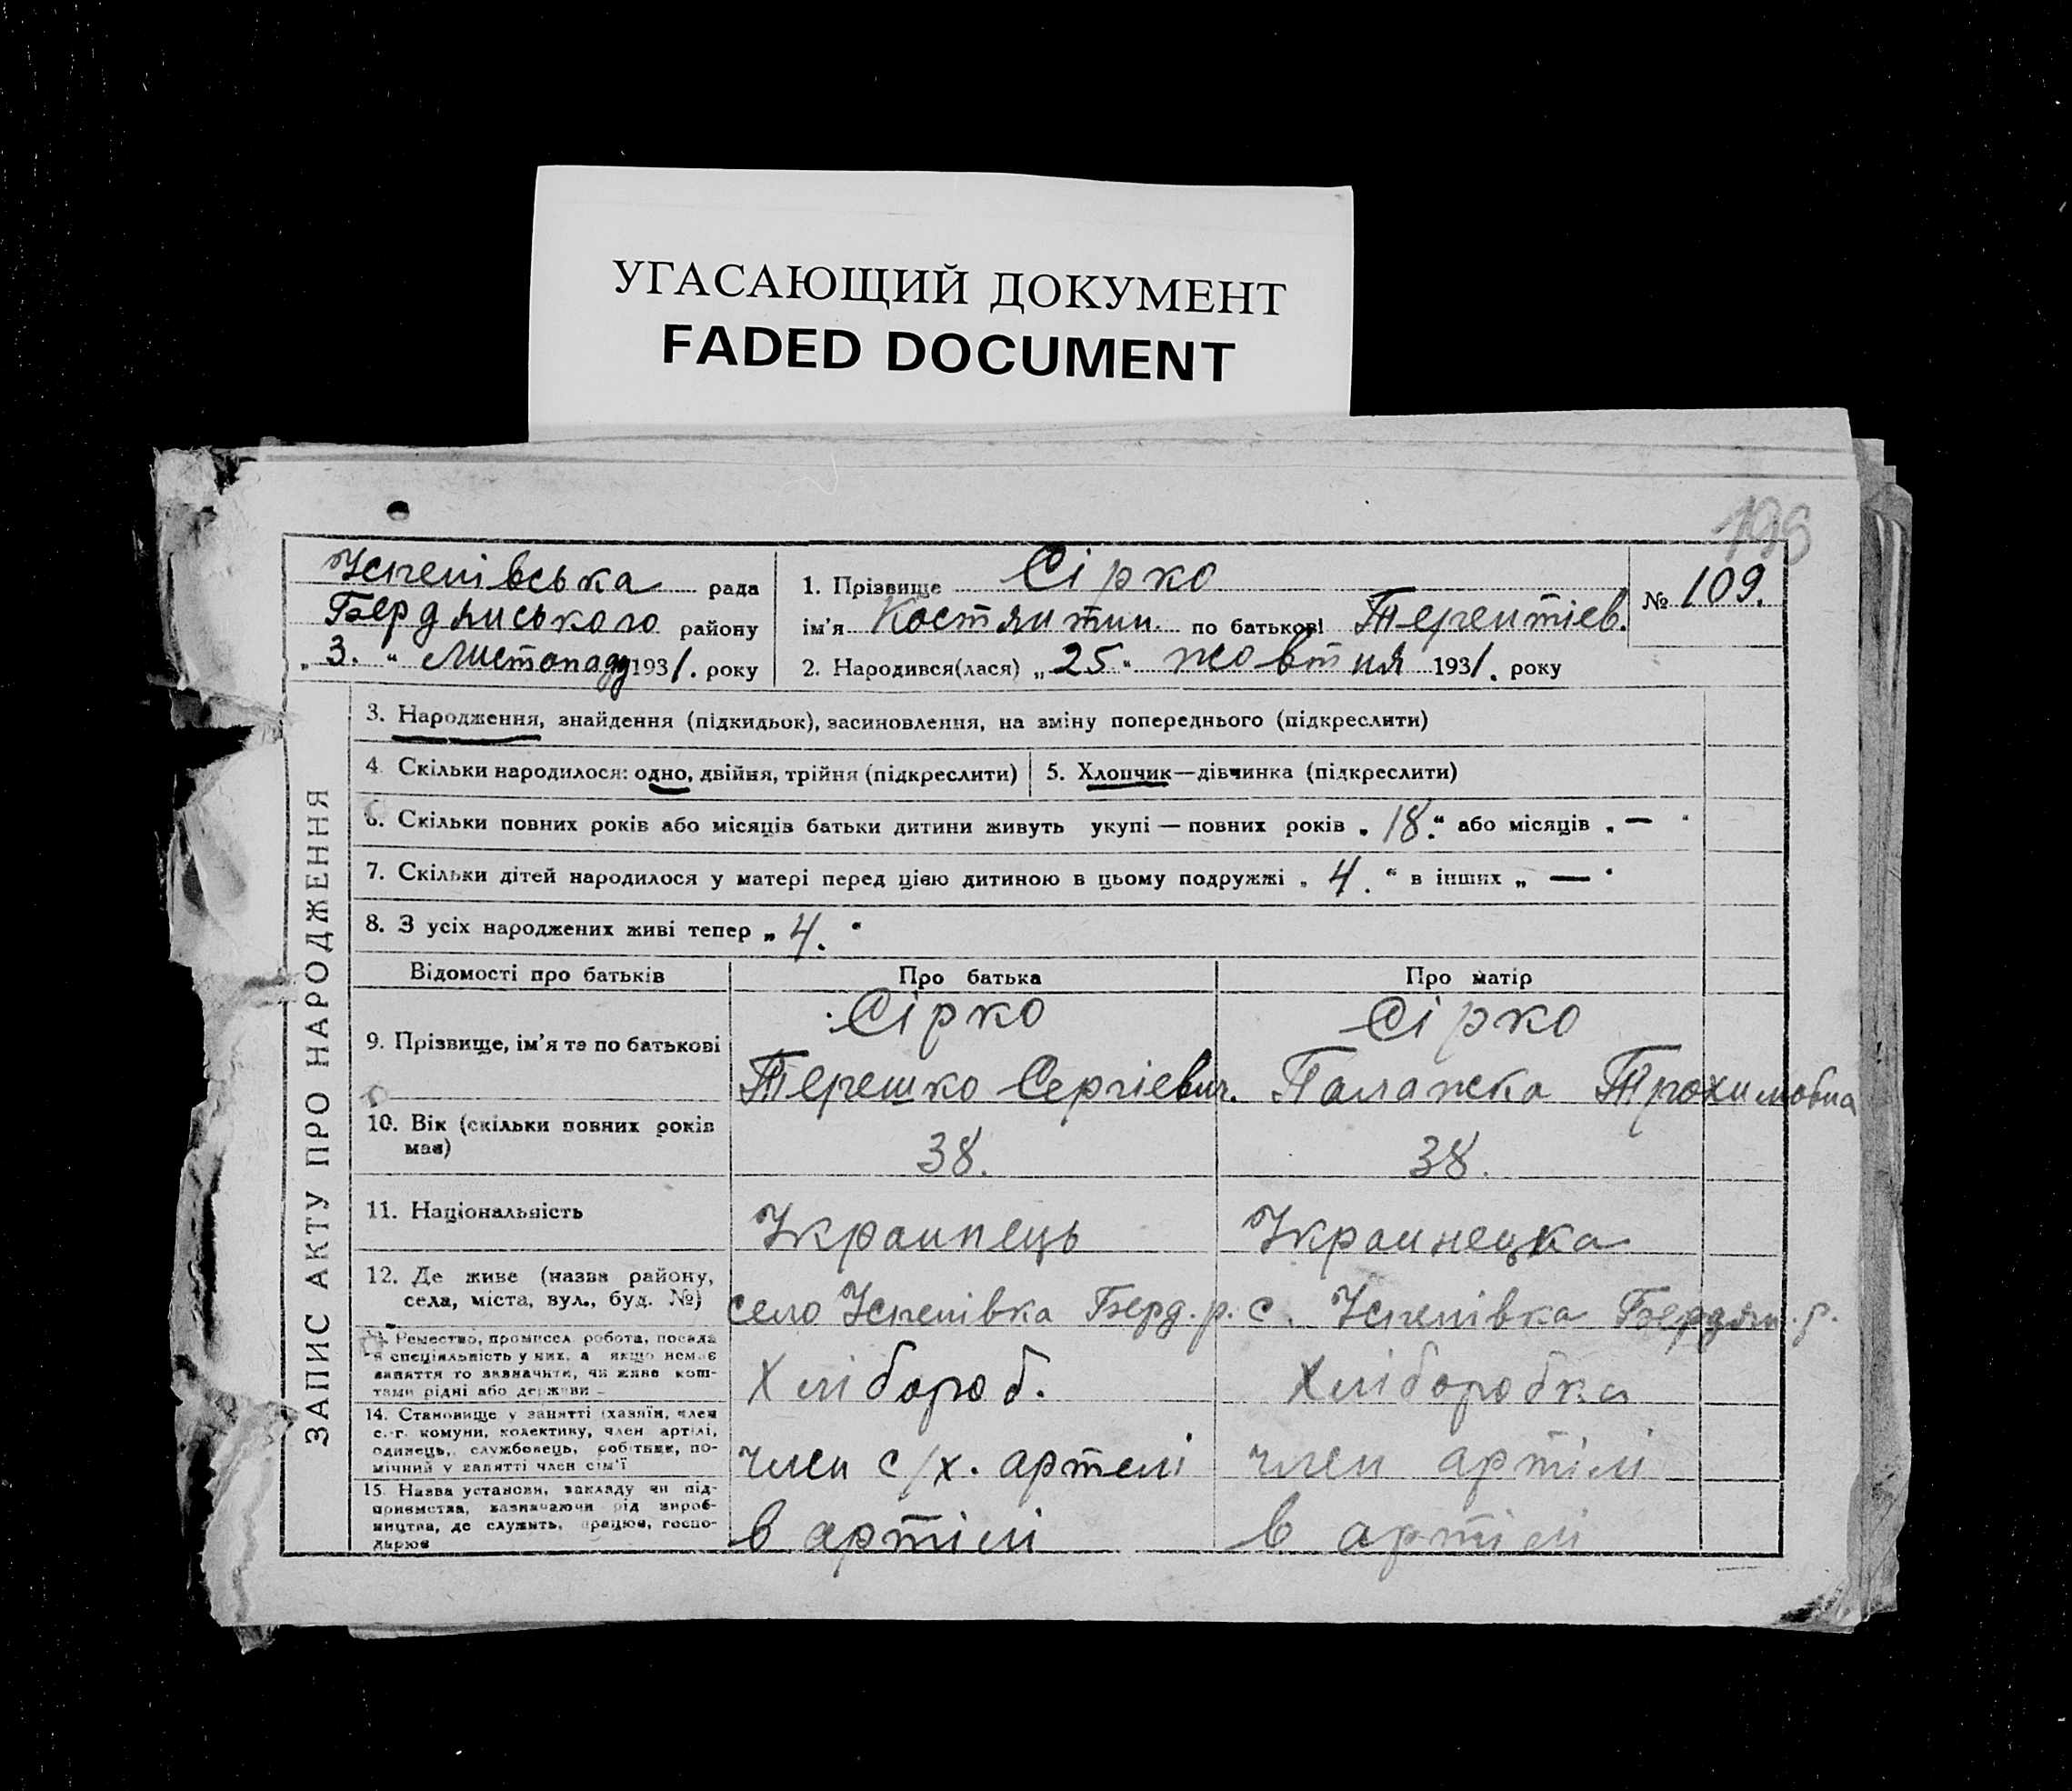 УГАСАЮЩИЙ ДОКУМЕНТ
FADED DOCUMENT
198
Успенівська рада
Бердянського району
„ 3. “ Листопаду 1931. року
1. Прізвище Сірко
ім'я Костянтин по батькові Терентіев.
№ 109.
2. Народився(лася) „ 25 “ жовтня 1931. року
ЗАПИС АКТУ ПРО НАРОДЖЕННЯ
3. Народження, знайдення (підкидьок), засиновлення, на зміну попереднього (підкреслити)
4. Скільки народилося: одно, двійня, трійня (підкреслити)
5. Хлопчик—дівчинка (підкреслити)
6. Скільки повних років або місяців батьки дитини живуть укупі — повних років „ 18. “ або місяців „ — “
7. Скільки дітей народилося у матері перед цією дитиною в цьому подружжі „ 4. “ в інших „ — “
8. З усіх народжених живі тепер „ 4. “
Відомості про батьків
Про батька
Про матір
9. Прізвище, ім'я та по батькові
Сірко
Терешко Сергіевич.
Сірко
Палажка Трохимовна
10. Вік (скільки повних років
має)
38.
38.
11. Національність
Украинець
Украинецка
12. Де живе (назва району,
села, міста, вул., буд. №)
село Успенівка Берд. р.
с. Успенівка Бердян. р.
13. Ремество, промисел робота, посада
й спеціяльність у них, а якщо немає
заняття то зазначити, чи живе кош-
тами рідні або держави
Хлібороб.
Хліборобка
14. Становище у занятті (хазяїн, член
с.-г. комуни, колективу, член артілі,
одинець, службовець, робітник, по-
мічний у занятті член сім'ї
член с/х. артелі
член артілі
15. Назва установи, закладу чи під-
приємства, зазначаючи рід вироб-
ництва, де служить, працює, госпо-
дарює
в артілі
в артілі